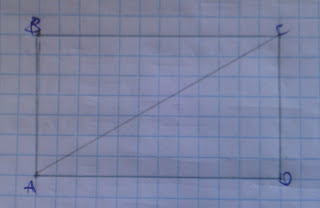 B C
A D